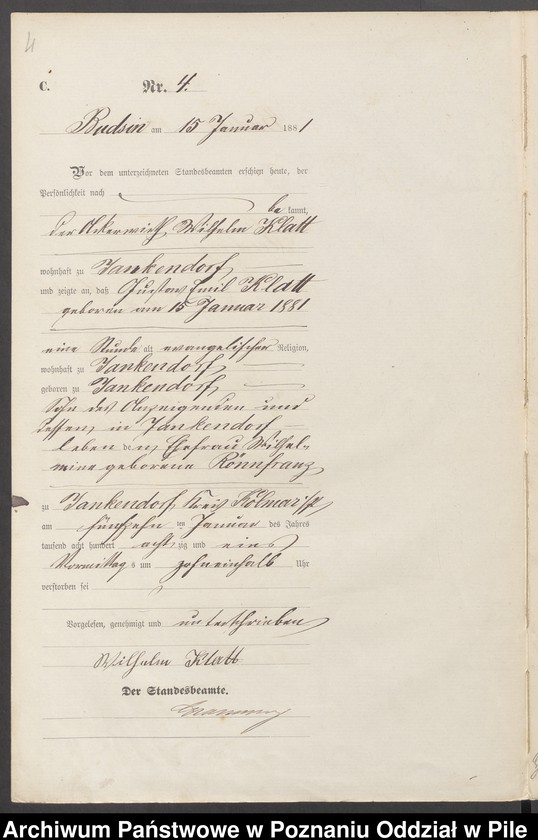 4
C.
Nr. 4.
Budsin am 15 Januar 1881
Vor dem unterzeichneten Standesbeamten erschien heute, der
Persönlichkeit nach
be kannt,
der Ackerwirth Wilhelm Klatt
wohnhaft zu Jankendorf
und zeigte an, daß Gustav Emil Klatt
geboren am 15 Januar 1881
eine Stunde alt evangelischer Religion,
wohnhaft zu Jankendorf
geboren zu Jankendorf
Sohn des Anzeigenden und
dessen in Jankendorf
lebenden Ehefrau Wilhel-
mine geborene Rönnfranz
zu Jankendorf Kreis Kolmar i/P
am fünfzehn ten Januar des Jahres
tausend acht hundert acht zig und eins
Vormittag s um zehneinhalb Uhr
verstorben sei
Vorgelesen, genehmigt und unterschrieben
Wilhelm Klatt
Der Standesbeamte.
Archiwum Państwowe w Poznaniu Oddział w Pile